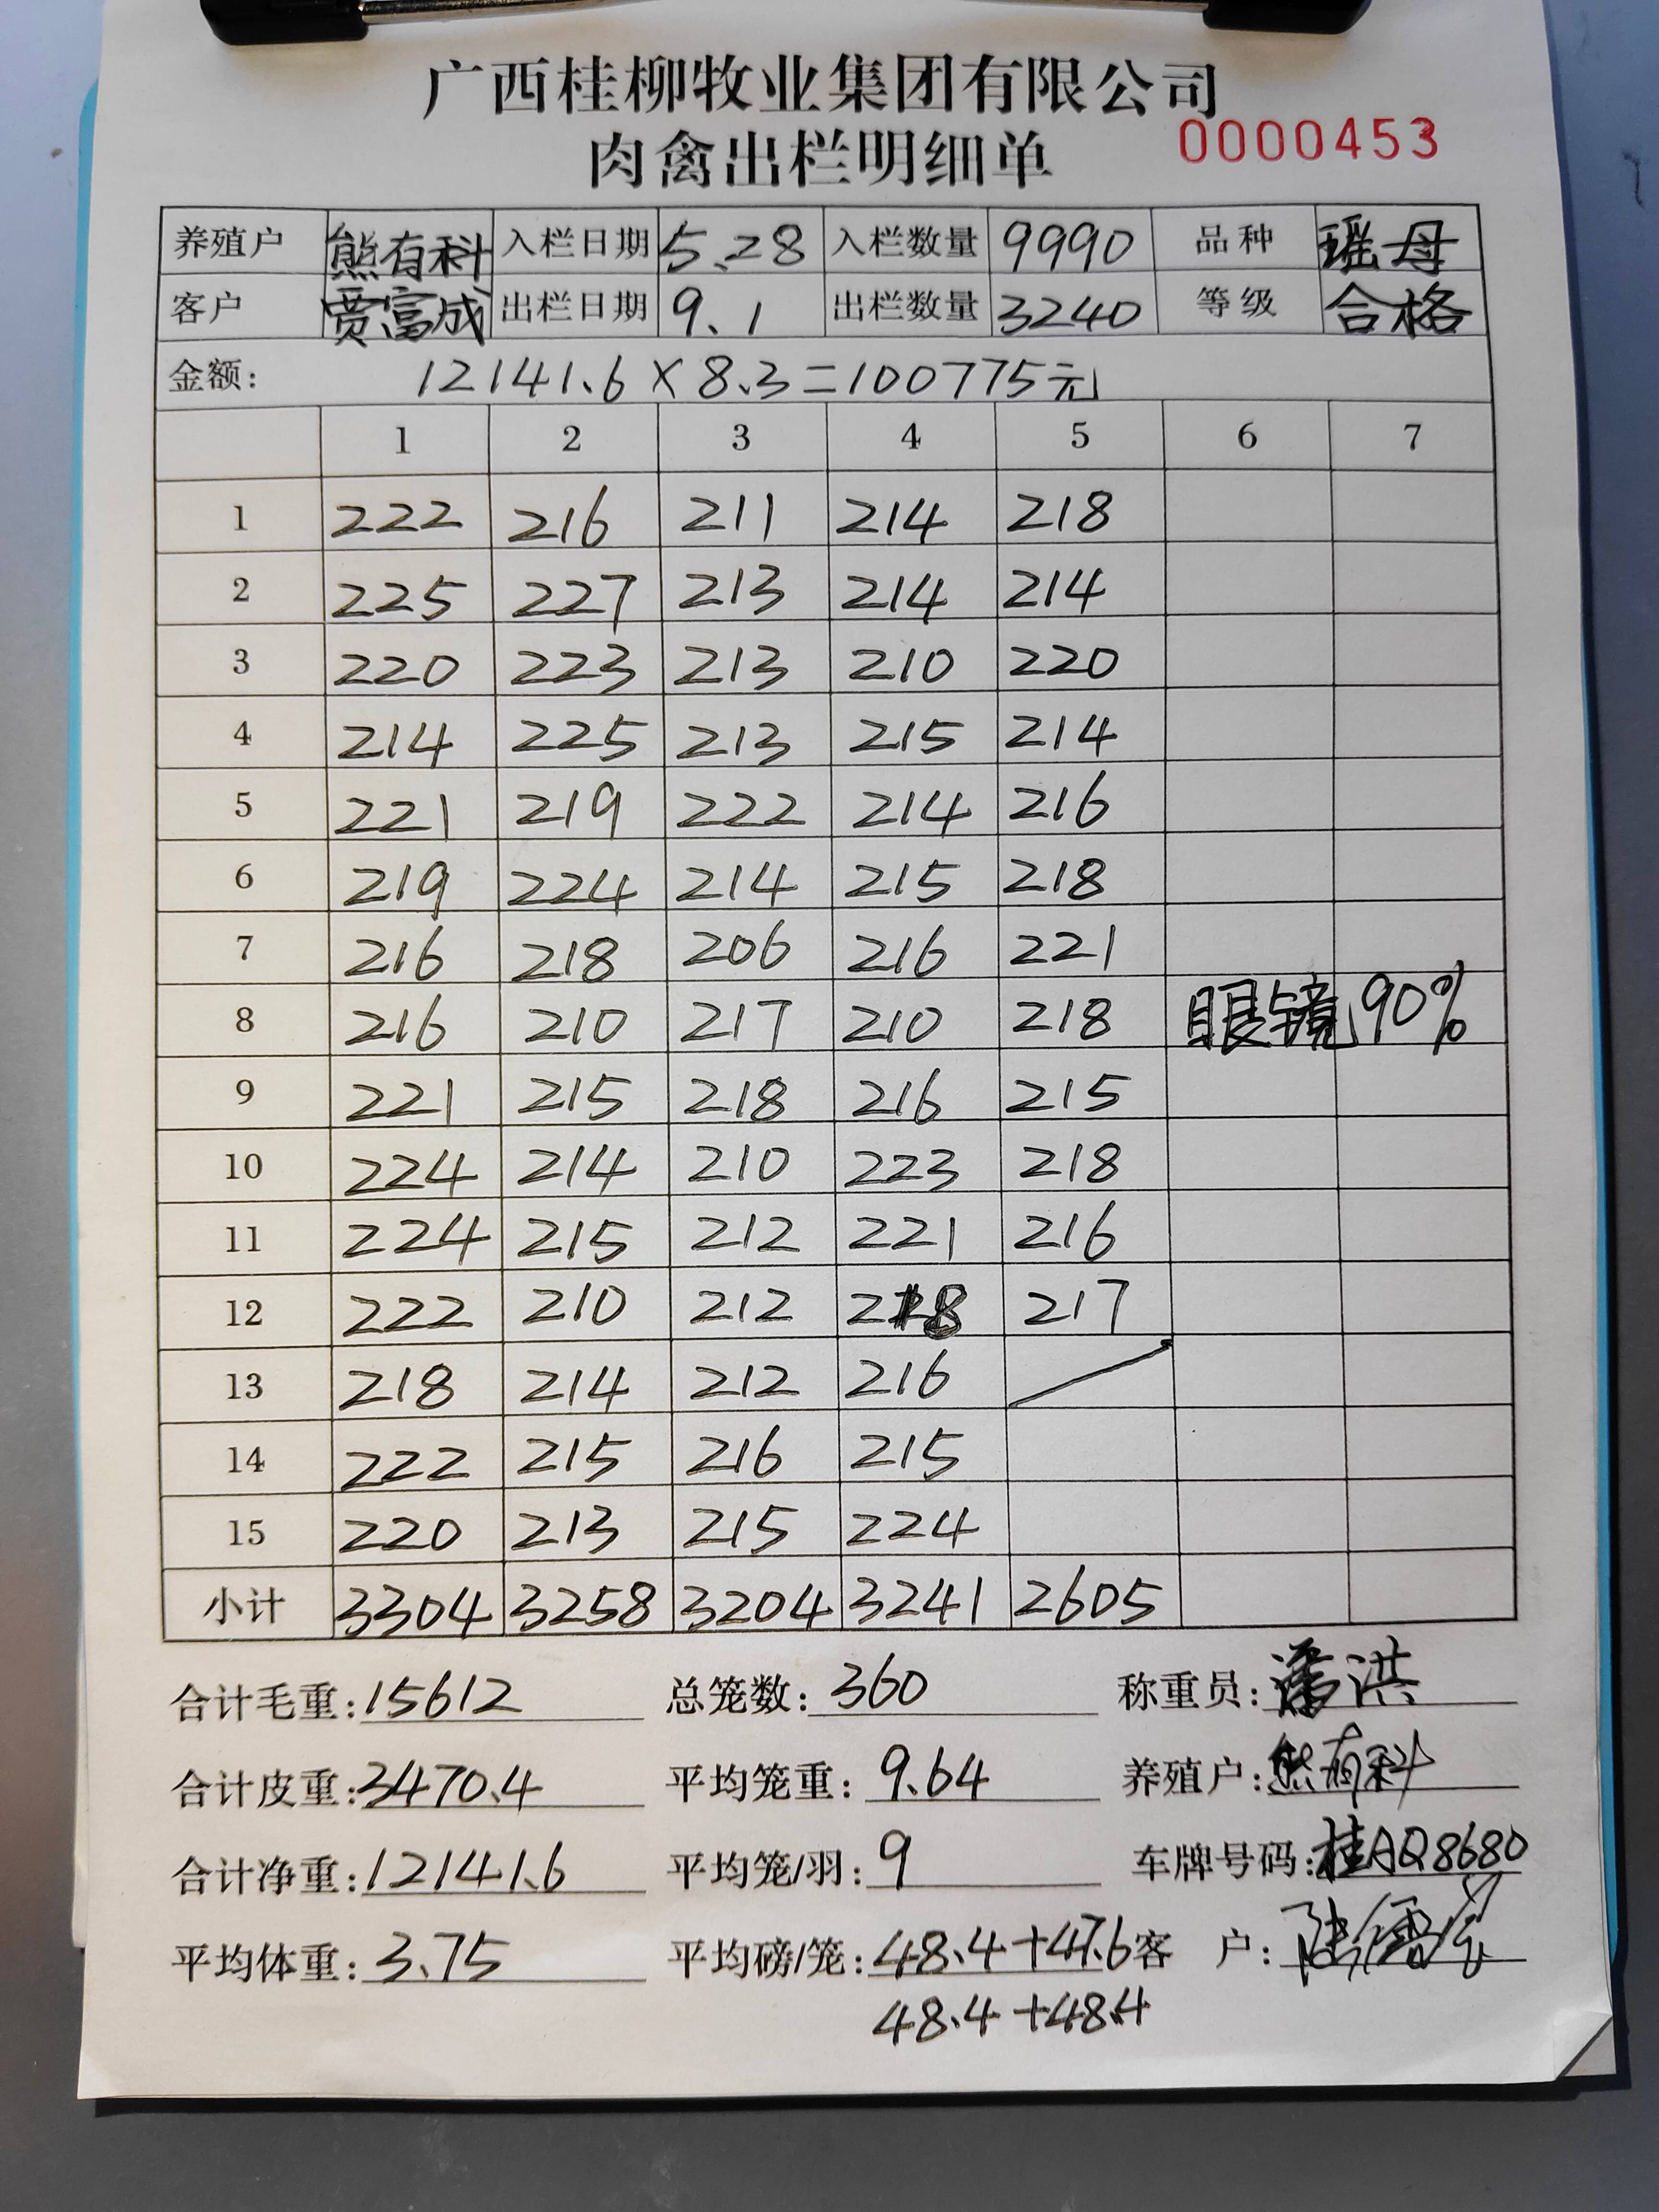 广西桂柳牧业集团有限公司
肉禽出栏明细单 0000453
养殖户 熊有科 入栏日期 5.28 入栏数量 9990 品种 瑶母
客户 贾富成 出栏日期 9.1 出栏数量 3240 等级 合格
金额: 12141.6×8.3=100775元
1 2 3 4 5 6 7
1 222 216 211 214 218
2 225 227 213 214 214
3 220 223 213 210 220
4 214 225 213 215 214
5 221 219 222 214 216
6 219 224 214 215 218
7 216 218 206 216 221
8 216 210 217 210 218 眼镜90%
9 221 215 218 216 215
10 224 214 210 223 218
11 224 215 212 221 216
12 222 210 212 218 217
13 218 214 212 216
14 222 215 216 215
15 220 213 215 224
小计 3304 3258 3204 3241 2605
合计毛重:15612 总笼数:360 称重员:潘洪
合计皮重:3470.4 平均笼重:9.64 养殖户:熊有科
合计净重:12141.6 平均笼/羽:9 车牌号码:桂AQ8680
平均体重:3.75 平均磅/笼:48.4+47.6 客户:
48.4+48.4